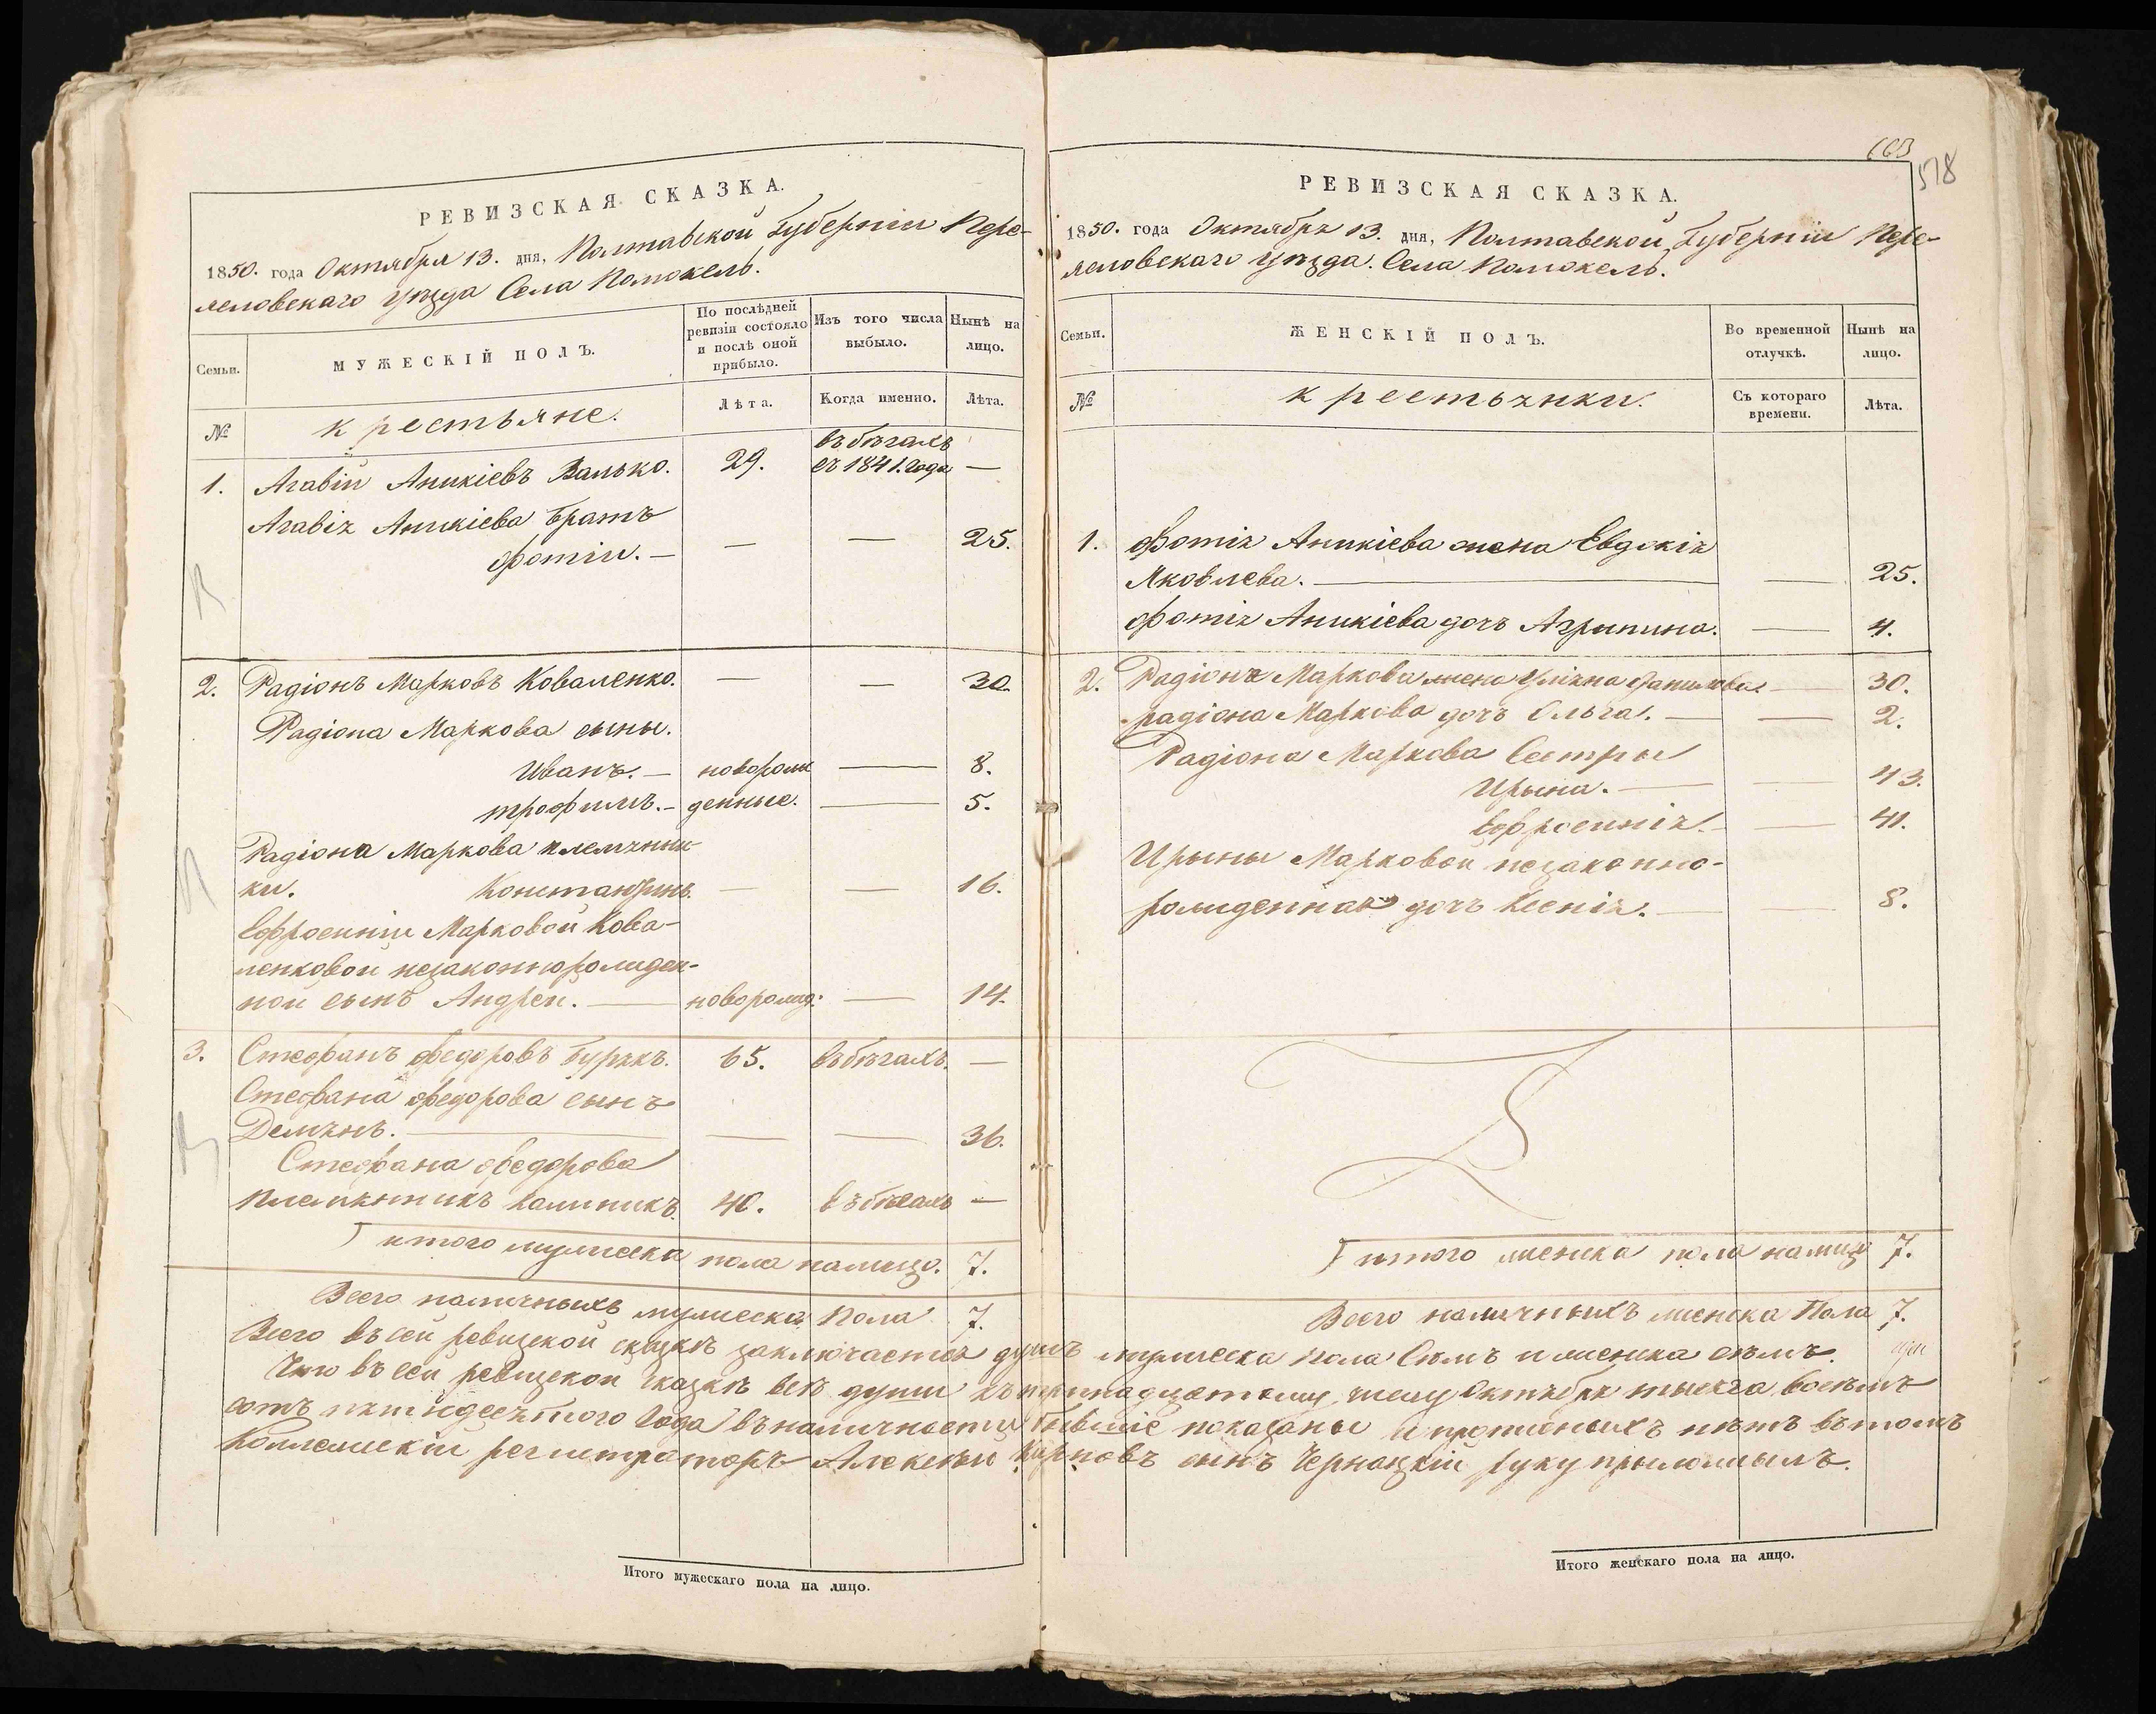 РЕВИЗСКАЯ СКАЗКА.
1850. года Октября 13. дня, Полтавской Губерніи Пере-
яcловскаго уѣзда Села Помокель.
Семьи.
МУЖЕСКІЙ ПОЛЪ.
По послѣдней
ревизіи состояло
и послѣ оной
прибыло.
Изъ того числа
выбыло.
Нынѣ на
лицо.
№
крестьяне.
Лѣта.
Когда именно.
Лѣта.
1. Агавій Аникіевъ Валько. 29. въ бѣгахъ
съ 1841. года —
Агавія Аникіева братъ
Фотій. — — — 25.
2. Радіонъ Марковъ Коваленко. — — 30.
Радіона Маркова сыны.
Иванъ. — новорож — 8.
трофимъ. — денные. — 5.
Радіона Маркова племянни-
ки. Константинъ. — — 16.
Ефросиніи Марковой Кова-
ленковой незаконнорожден-
ной сынъ Андрей. — новорожд: — 14.
3. Стефанъ Федоровъ Бурякъ. 65. въ бѣгахъ. —
Стефана Федорова сынъ
Демянъ. — — — 36.
Стефана Федорова
племянникъ Калиникъ. 40. въ бѣгахъ —
итого мужеска пола налицо. 7.
Всего наличныхъ мужеска пола 7.
Итого мужескаго пола на лицо.
663
578
РЕВИЗСКАЯ СКАЗКА.
1850. года Октября 13. дня, Полтавской Губерніи Пере-
ясловскаго уѣзда. Села Помокель.
Семьи.
ЖЕНСКІЙ ПОЛЪ.
Во временной
отлучкѣ.
Нынѣ на
лицо.
№
крестьянки.
Съ котораго
времени.
Лѣта.
1. Фотія Аникіева жена Евдокія
Яковлева. — — 25.
Фотія Аникіева дочь Агрипина. — 4.
2. Радіона Маркова жена Уліяна — 30.
радіона Маркова дочь Ольга. — — 2.
Радіона Маркова Сестры
Ирына. — — 43.
Ефросинія. — — 41.
Ирыны Марковой незаконно-
рожденная дочь Ксенія. — — 8.
итого женска пола налицо 7.
Всего наличныхъ женска Пола 7.
Всего въ сей ревизской сказкѣ заключается душъ мужеска пола Сѣмъ и женска сѣмъ.
Что въ сей ревизской сказкѣ всѣ души къ тринадцатому числу Октября тысяча восѣмъ
сотъ пятидесятого Года въ наличности бывшіе показаны и прописныхъ нѣтъ въ томъ
Коллежскій регистраторъ Алексѣй сынъ Чернацкій руку прыложылъ.
Итого женскаго пола на лицо.